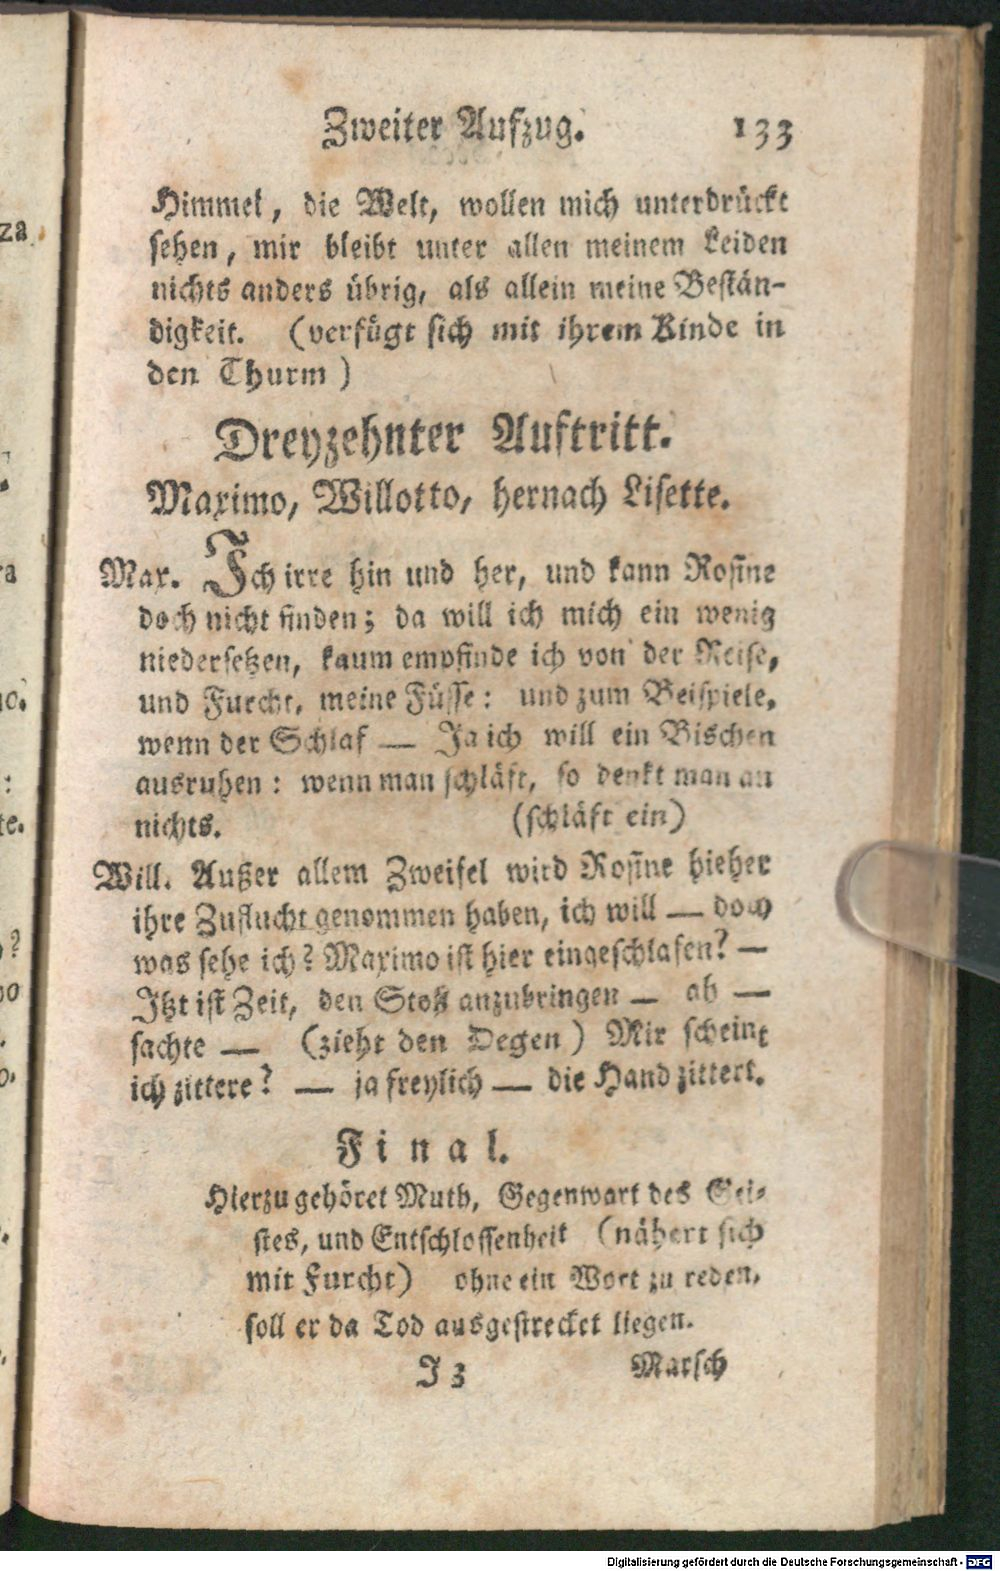 Zweiter Aufzug. 133
Himmel, die Welt, wollen mich unterdrückt
sehen, mir bleibt unter allen meinem Leiden
nichts anders übrig, als allein meine Bestän-
digkeit. (verfügt sich mit ihrem Kinde in
den Thurm)
Dreyzehnter Auftritt.
Maximo, Willotto, hernach Lisette.
Max. Ich irre hin und her, und kann Rosine
doch nicht finden; da will ich mich ein wenig
niedersetzen, kaum empfinde ich von der Reise,
und Furcht, meine Füsse: und zum Beispiele,
wenn der Schlaf — Ja ich will ein Bischen
ausruhen: wenn man schläft, so denkt man an
nichts. (schläft ein)
Will. Außer allem Zweifel wird Rosine hieher
ihre Zuflucht genommen haben, ich will — doch
was sehe ich? Maximo ist hier eingeschlafen? —
Itzt ist Zeit, den Stoß anzubringen — ah —
sachte — (zieht den Degen) Mir scheint
ich zittere? — ja freylich — die Hand zittert.
Final.
Hierzu gehöret Muth, Gegenwart des Gei-
stes, und Entschlossenheit (nähert sich
mit Furcht) ohne ein Wort zu reden,
soll er da Tod ausgestrecket liegen.
I 3 Marsch
za
ra
no.
:
te.
?
Digitalisierung gefördert durch die Deutsche Forschungsgemeinschaft - DFG